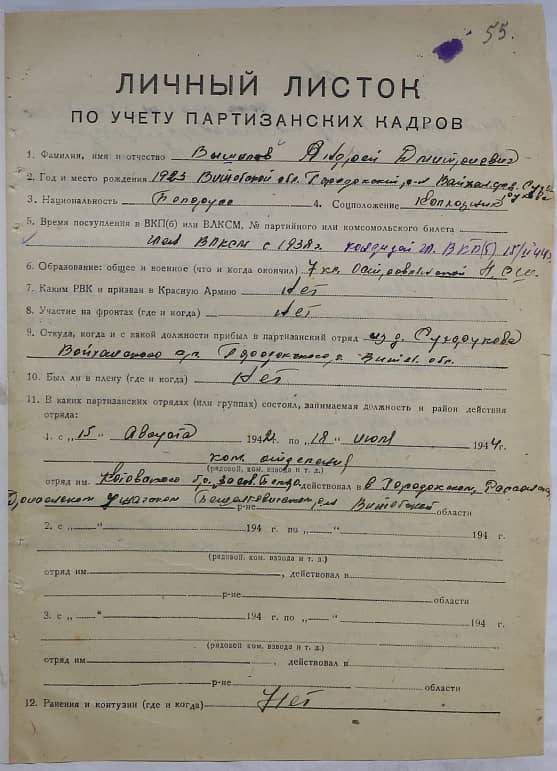 55.
ЛИЧНЫЙ ЛИСТОК
ПО УЧЕТУ ПАРТИЗАНСКИХ КАДРОВ
1. Фамилия, имя и отчество Андрей Дмитриевич
2. Год и место рождения 1923 Витебской обл. Городокский р-н
3. Национальность Белорус 4. Соцположение Колхозник
5. Время поступления в ВКП(б) или ВЛКСМ, № партийного или комсомольского билета
член ВЛКСМ с 1938 г. ВКП(б)
6. Образование: общее и военное (что и когда окончил) 7 кл.
7. Каким РВК и призван в Красную Армию Нет
8. Участие на фронтах (где и когда) Нет
9. Откуда, когда и с какой должности прибыл в партизанский отряд из д. Суздрукова
Городокского р. Витеб. обл.
10. Был ли в плену (где и когда) Нет
11. В каких партизанских отрядах (или группах) состоял, занимаемая должность и район действия
отряда:
1. с „15" Августа 1942 г. по „18" июля 1944 г.
ком. отделения
(рядовой, ком. взвода и т. д.)
отряд им. Котовского действовал в в Городокском,
р-не Витебской области
2. с „ " 194 г. по „ " 194 г.
(рядовой, ком. взвода и т. д.)
отряд им. , действовал в
р-не области
3. с „ " 194 г. по „ " 194 г.
(рядовой ком. взвода и т. д.)
отряд им. , действовал в
р-не области
12. Ранения и контузии (где и когда) Нет